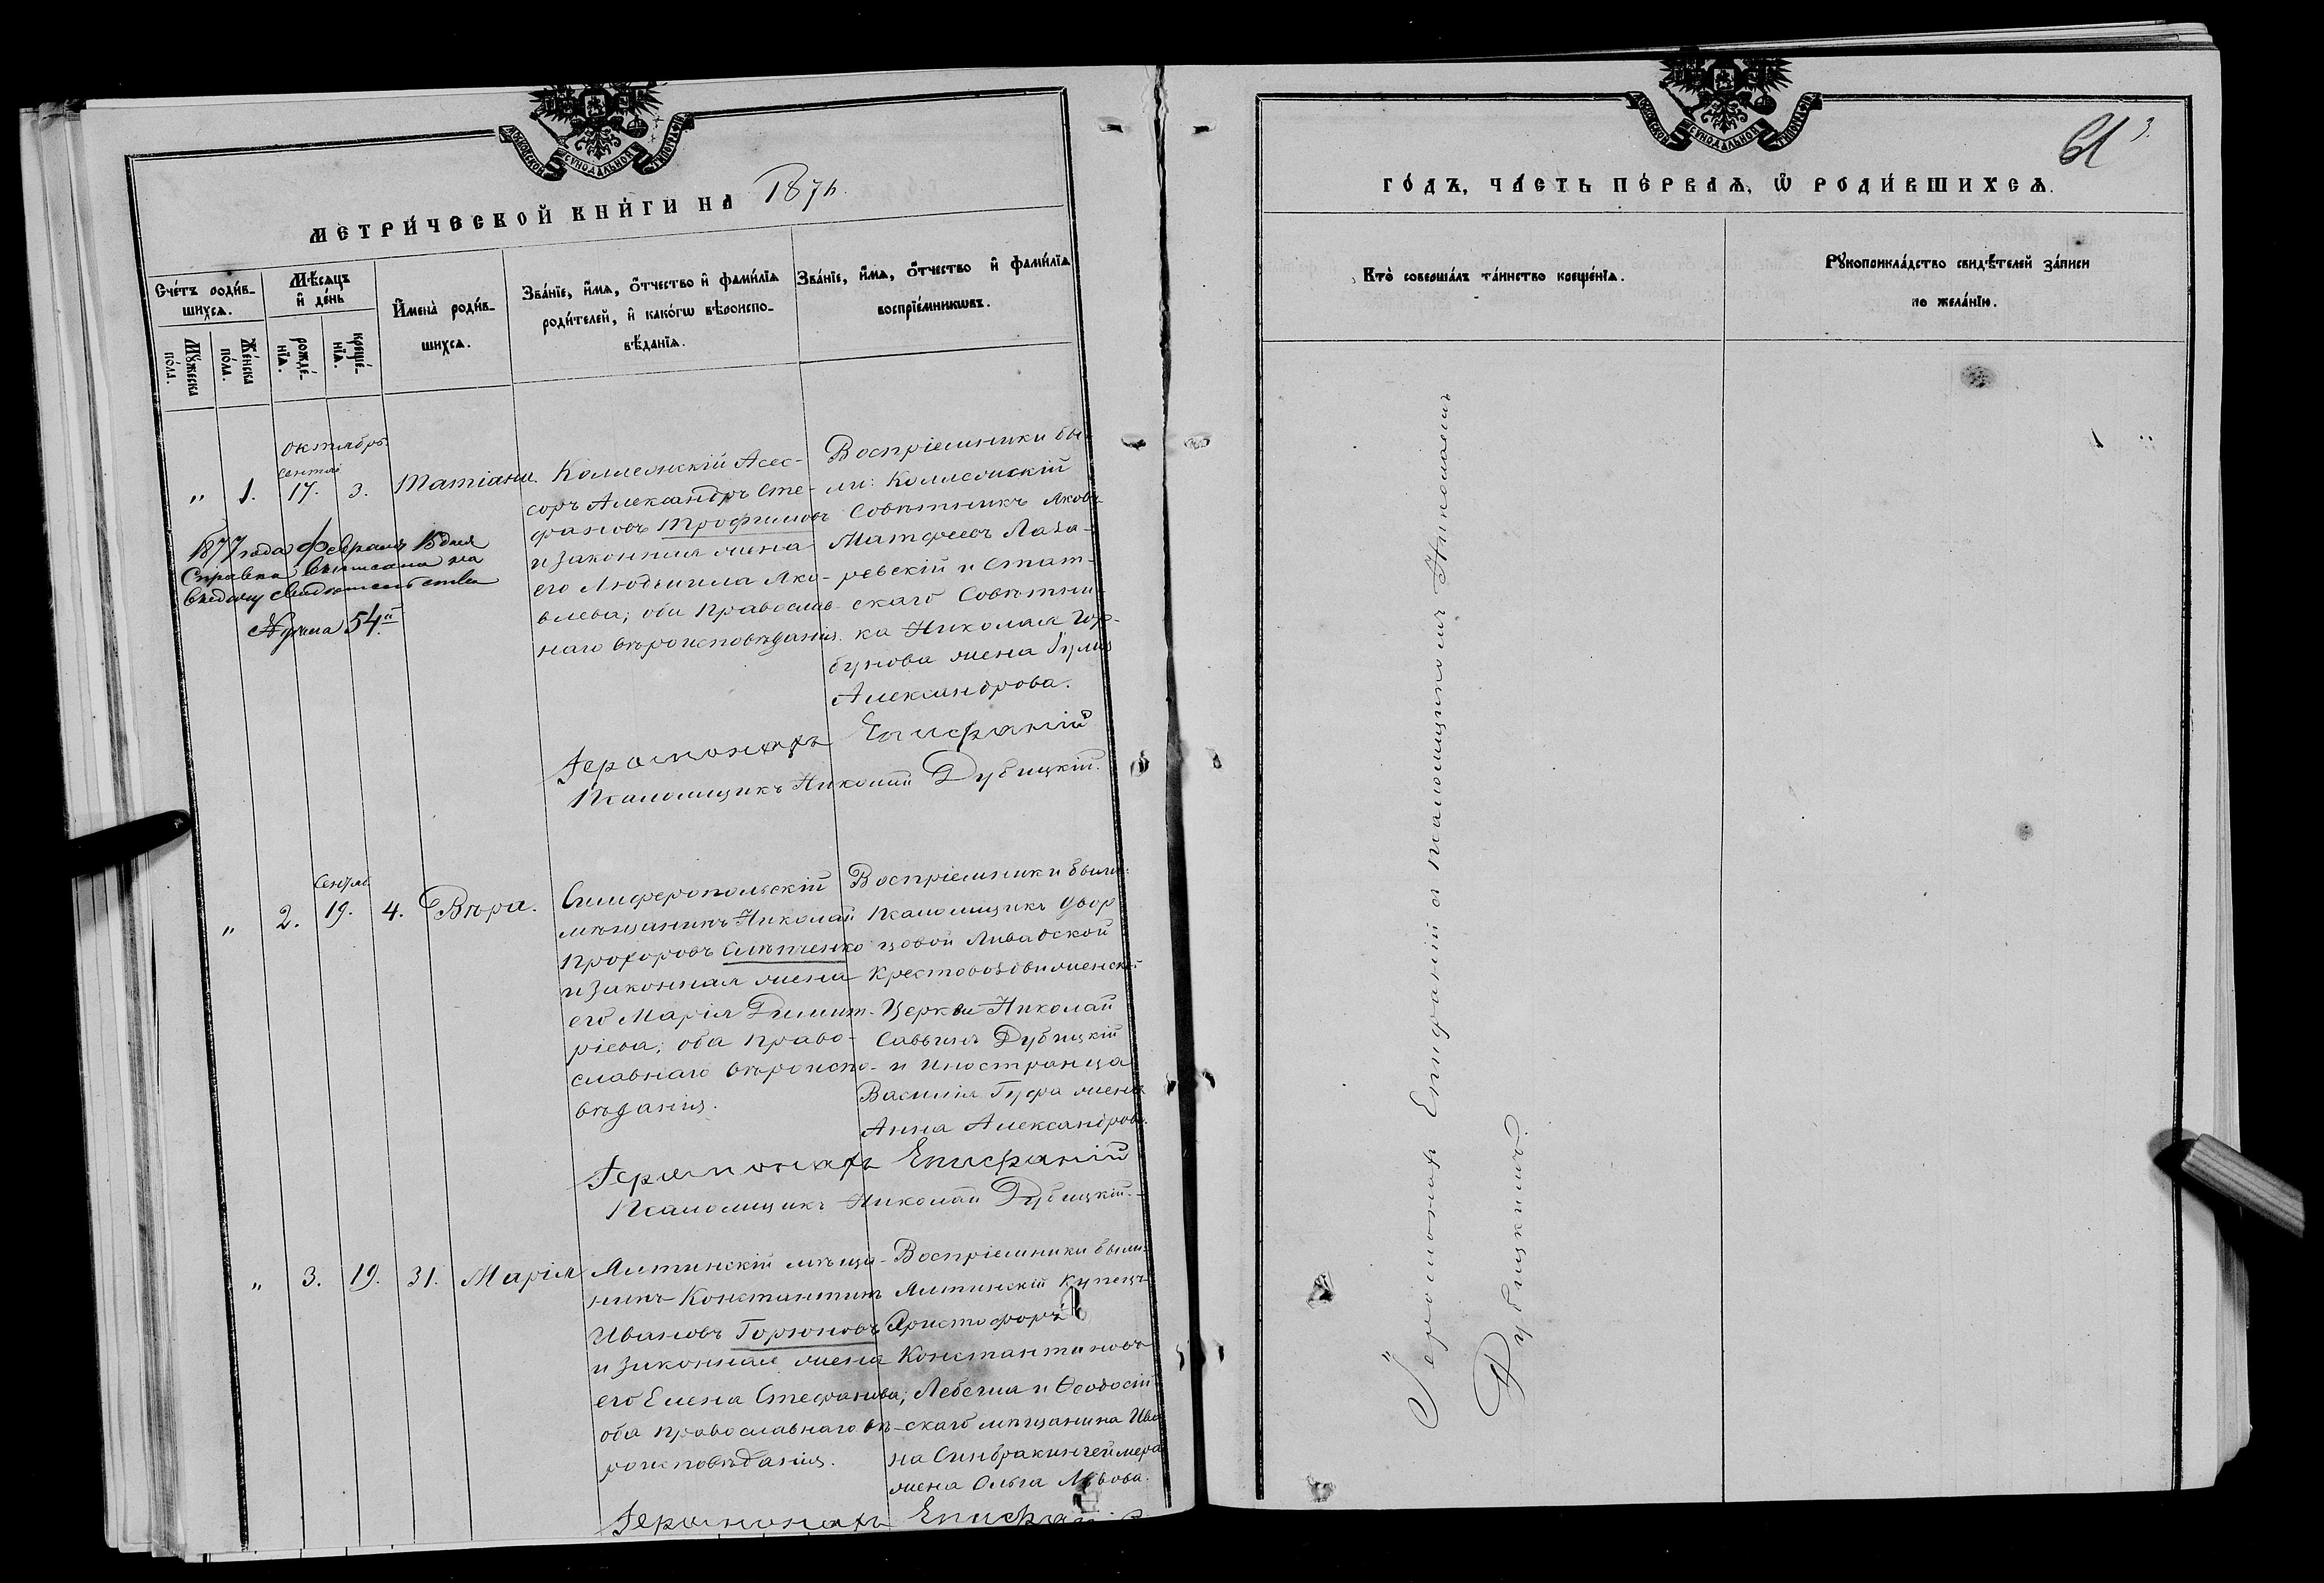 МОСКОВСКОЙ СѴНОДАЛЬНОЙ ТѴПОГРАФІИ
МЕТРИ́ЧЕСКОЙ КНИ́ГИ НА 187
Сче́тъ роди́в-
шихсѧ.
Мꙋ́жеска
по́ла.
Же́нска
по́ла.
Мѣ́сѧцъ
и҆ де́нь
рожде́-
нїѧ.
креще́-
нїѧ.
И҆мена̀ роди́в-
шихсѧ.
Зва́нїе, и҆́мѧ, ѻ҆́тчество и҆ фами́лїѧ
роди́телей, и҆ како́гѡ вѣроиспо-
вѣ́данїѧ.
Зва́нїе, и҆́мѧ, ѻ҆́тчество и҆ фами́лїѧ
воспрїе́мникѡвъ.
октябрь
Сентяб
" 1. 17. 3. Татіана.
Коллежскій Асес-
соръ Александръ Сте-
фановъ Трофимовъ
и законная жена
его Людмила Яко-
влева; оба православ-
наго вѣроисповѣданія.
Воспріемники бы-
ли: Коллежскій
Совѣтникъ Яковъ
Матфеевъ Лаза-
ревскій и Стат-
скаго Совѣтни-
ка Николая Гор-
бунова жена Юлія
Александрова.
1877 года Февраля 15 дня
Справка выписана на
выдачу свидѣтельства
54.
Іеромонахъ Епифаній
Псаломщикъ Николай Дубицкій.
Сентяб.
" 2. 19. 4. Вѣра.
Симферопольскій
мѣщанинъ Николай
Прохоровъ
и законная жена
его Марія Димит-
ріева; оба право-
славнаго вѣроиспо-
вѣданія.
Воспріемники были:
Псаломщикъ двор
цовой Ливадской
Крестовоздвиженской
Церкви Николай
Саввинъ Дубицкій
и иностранца
Василія жена
Анна Александрова.
Іеромонахъ Епифаній
Псаломщикъ Николай Дубицкій.
" 3. 19. 31. Марія
Ялтинскій мѣща-
нинъ Константинъ
Ивановъ Горюновъ
и законная жена
его Елена Стефанова;
оба православнаго вѣ-
роисповѣданія.
Воспріемники были:
Ялтинскій купецъ
Христофоръ
Константиновъ
и Ѳеодосій-
скаго мѣщанина Ива
на
жена Ольга Львова.
Іеромонахъ Епифаній
МОСКОВСКОЙ СѴНОДАЛЬНОЙ ТѴПОГРАФІИ
61
3.
ГО́ДЪ, ЧА́СТЬ ПЕ́РВАѦ, Ѡ҆ РОДИ́ВШИХСѦ.
Кто̀ соверша́лъ та́инство креще́нїѧ.
Рꙋкоприкла́дство свидѣ́телей за́писи
по жела́нїю.
Іеромонах Епифаній съ псаломщикомъ Николаемъ
Дубицкимъ.